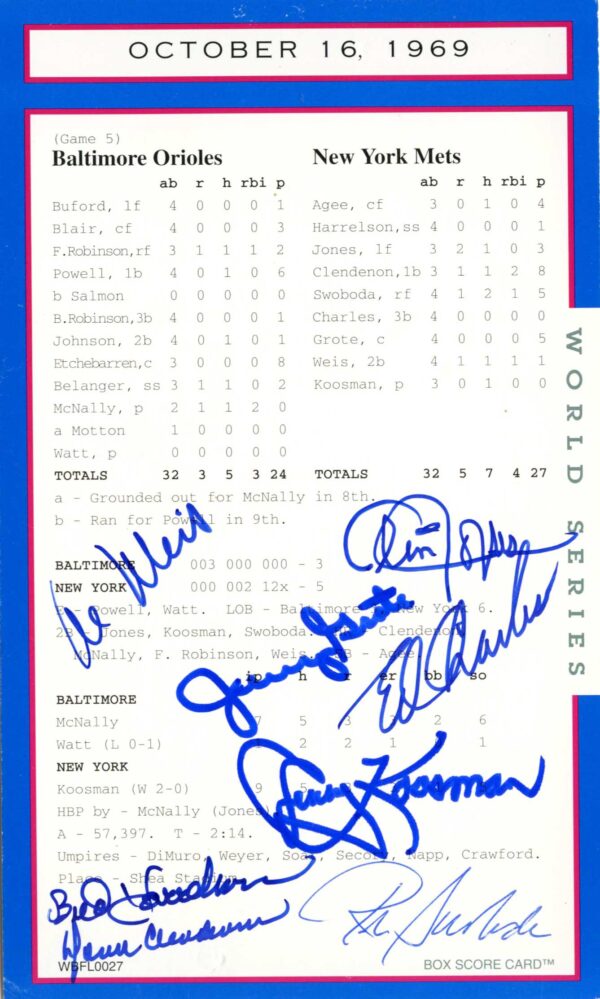 OCTOBER 16, 1969
(Game 5)
Baltimore Orioles
ab r h rbi p
Buford, lf 4 0 0 0 1
Blair, cf 4 0 0 0 3
F.Robinson,rf 3 1 1 1 2
Powell, 1b 4 0 1 0 6
b Salmon 0 0 0 0 0
B.Robinson,3b 4 0 0 0 1
Johnson, 2b 4 0 1 0 1
Etchebarren,c 3 0 0 0 8
Belanger, ss 3 1 1 0 2
McNally, p 2 1 1 2 0
a Motton 1 0 0 0 0
Watt, p 0 0 0 0 0
TOTALS 32 3 5 3 24
New York Mets
ab r h rbi p
Agee, cf 3 0 1 0 4
Harrelson,ss 4 0 0 0 1
Jones, lf 3 2 1 0 3
Clendenon,1b 3 1 1 2 8
Swoboda, rf 4 1 2 1 5
Charles, 3b 4 0 0 0 0
Grote, c 4 0 0 0 5
Weis, 2b 4 1 1 1 1
Koosman, p 3 0 1 0 0
TOTALS 32 5 7 4 27
WORLD SERIES
a - Grounded out for McNally in 8th.
b - Ran for Powell in 9th.
Al Weis
Cleon Jones
BALTIMORE 003 000 000 - 3
NEW YORK 000 002 12x - 5
E - Powell, Watt. LOB - Baltimore 3, New York 6.
2B - Jones, Koosman, Swoboda. HR - Clendenon,
McNally, F. Robinson, Weis. SB - Agee.
Jerry Grote
Ed Charles
ip h r er bb so
BALTIMORE
McNally 7 5 3 2 6
Watt (L 0-1) 1 2 2 1 1
NEW YORK
Koosman (W 2-0) 9 5
Jerry Koosman
HBP by - McNally (Jones)
A - 57,397. T - 2:14.
Umpires - DiMuro, Weyer, Soar, Secory, Napp, Crawford.
Place - Shea Stadium
Bud Harrelson
Donn Clendenon
Ron Swoboda
WBFL0027
BOX SCORE CARD™